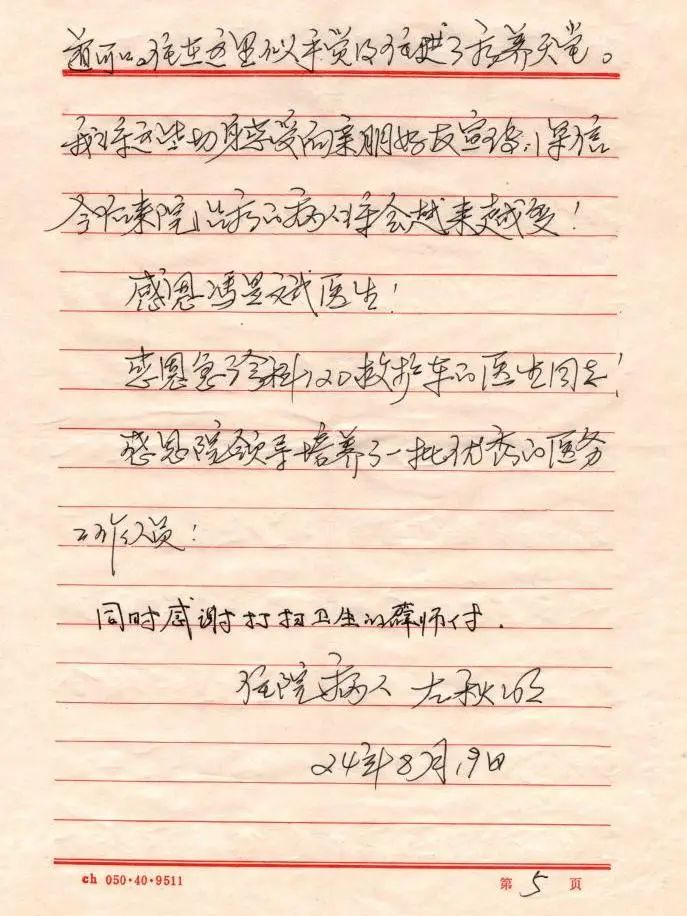 道可口。住在这里似乎觉得住进了疗养天堂。
我将这些切身感受向亲朋好友宣传,深信
今后来院治疗的病人将会越来越多!
感恩冯是斌医生!
感恩急诊科120救护车的医生同志!
感恩院领导培养了一批优秀的医务
工作人员!
同时感谢打扫卫生的薛师付.
住院病人 左秋明
24年8月19日
ch 050·40·9511
第 5 页